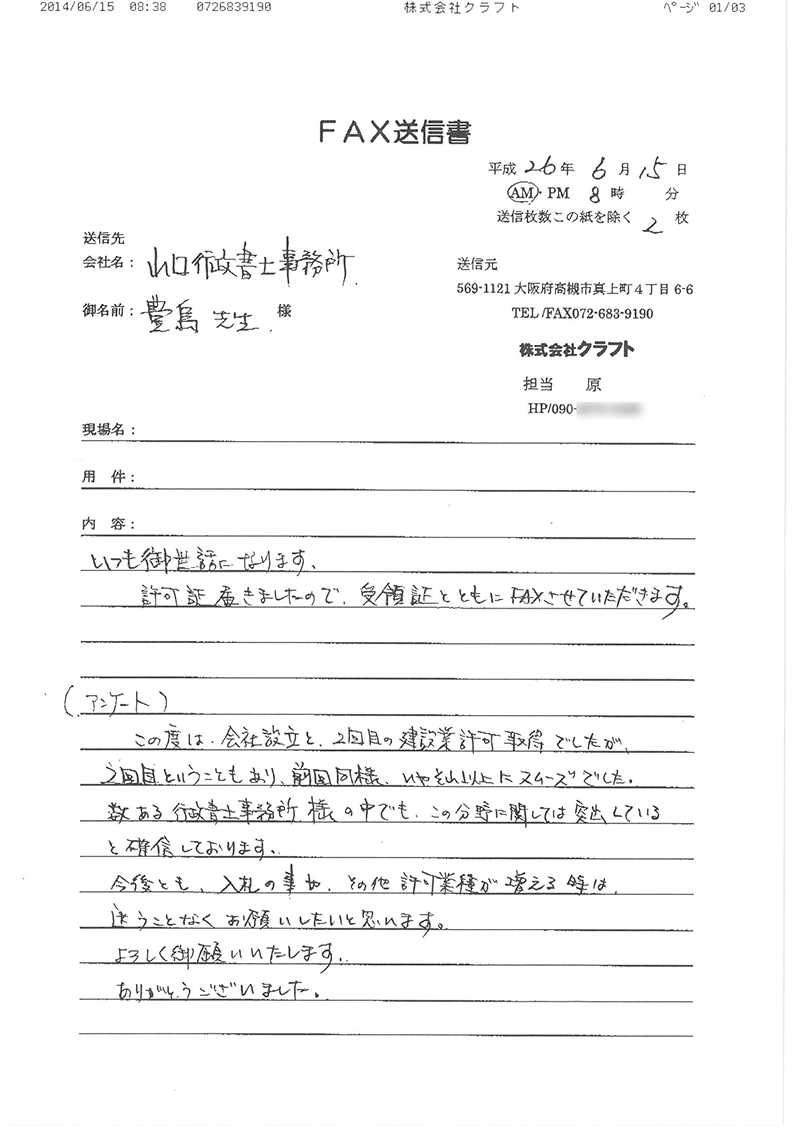 2014/06/15 08:38 0726839190 株式会社クラフト ページ 01/03
FAX送信書
平成 26年 6月 15日
AM・PM 8時 分
送信枚数この紙を除く 2 枚
送信先
会社名： 山口行政書士事務所
御名前： 豊島 先生. 様
送信元
569-1121 大阪府高槻市真上町4丁目6-6
TEL/FAX072-683-9190
株式会社クラフト
担当 原
HP/090-
現場名：
用 件：
内 容：
いつも御世話になります、
許可証届きましたので、受領証とともにFAXさせていただきます。
(アンケート)
この度は、会社設立と、2回目の建設業許可取得でしたが、
2回目ということもあり、前回同様、いやそれ以上にスムーズでした。
数ある行政書士事務所様の中でも、この分野に関しては突出している
と確信しております。
今後とも、入札の事や、その他許可業種が増える時は、
迷うことなくお願いしたいと思います。
よろしく御願いいたします。
ありがとうございました。